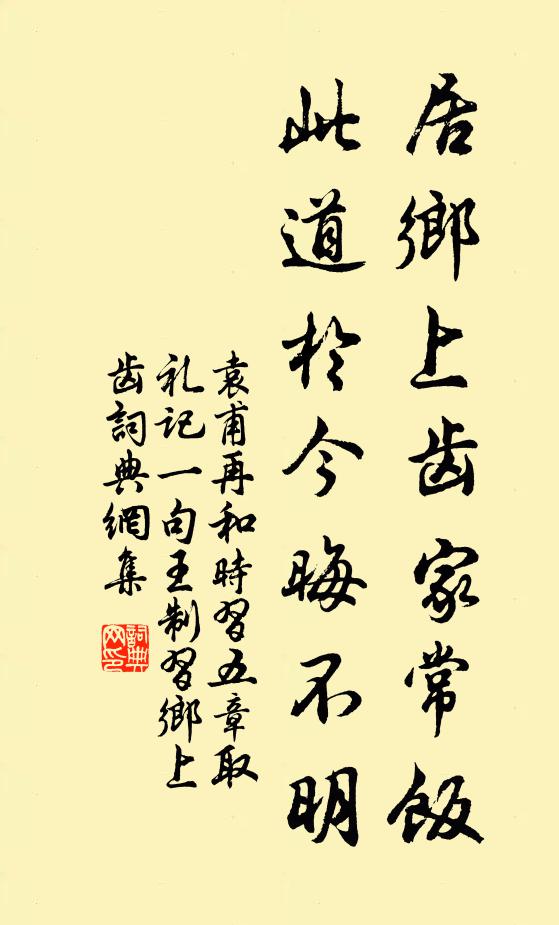 居鄉上齿家常飯
此道於今晦不明
袁甫再和時習五章取
礼记一句王制習鄉上
齿詞典網集
詞典网印